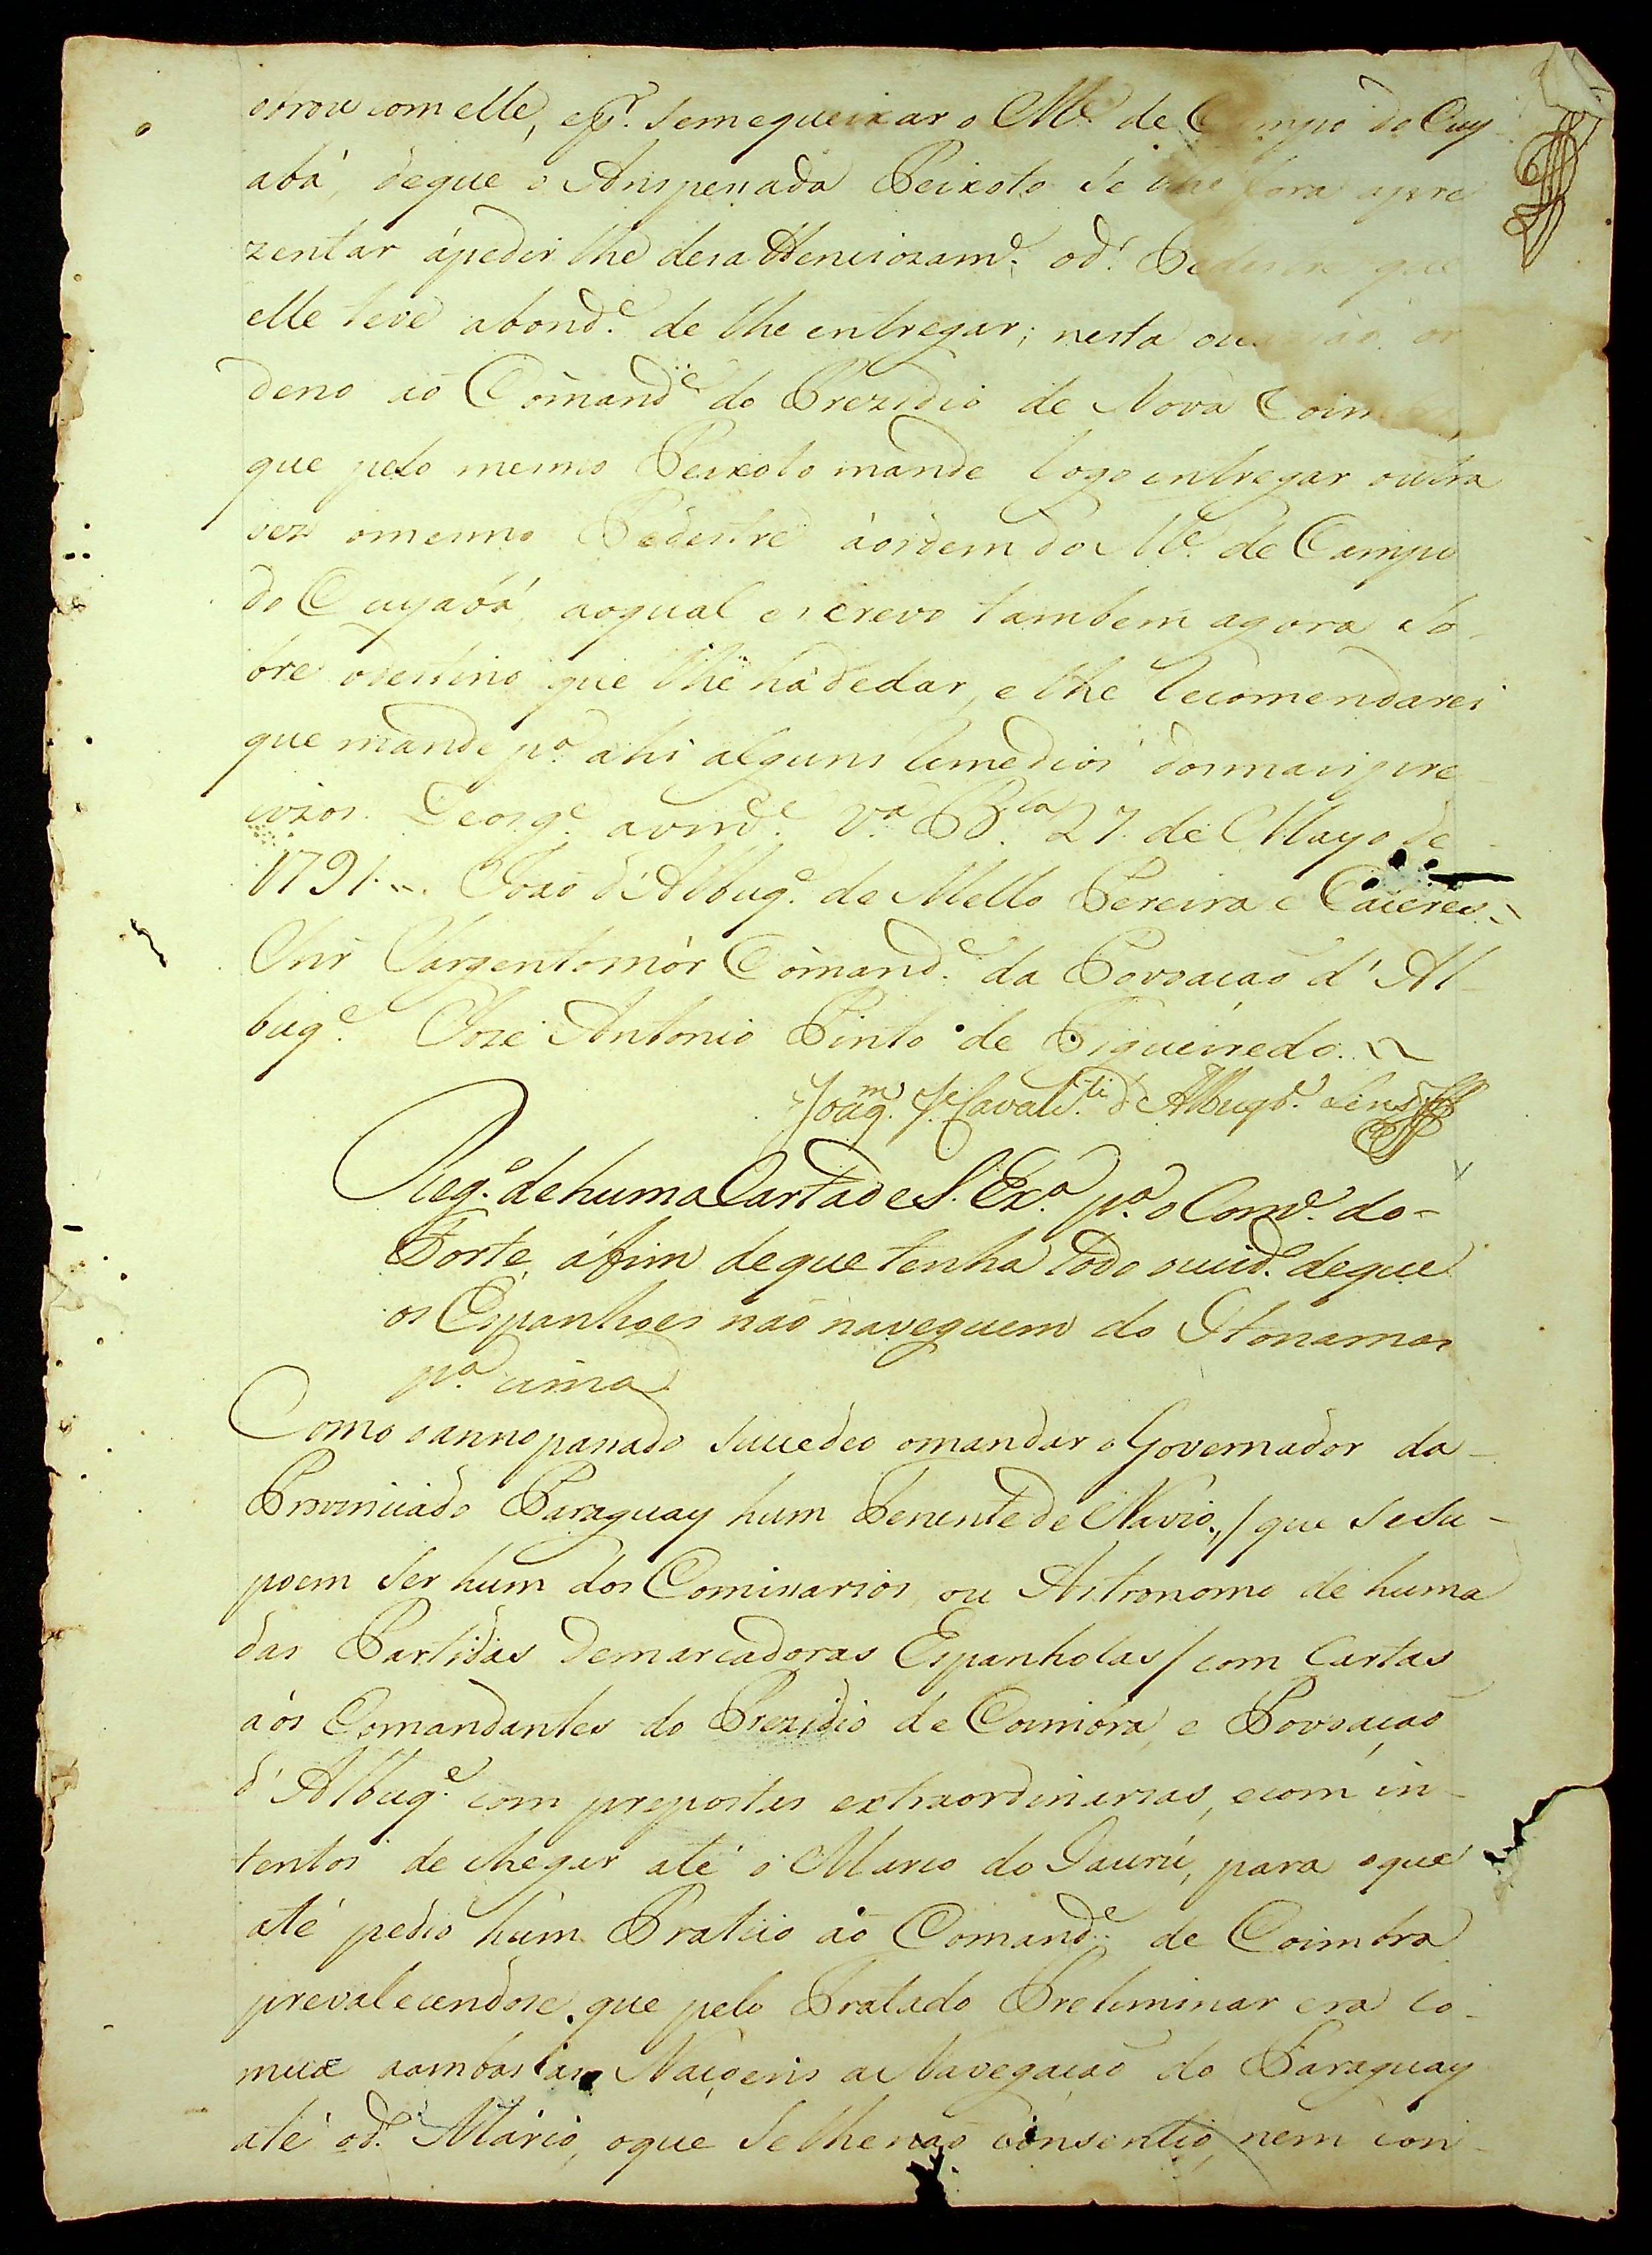 obrou com elle, e p.r se me queixar o M.e de Campo do Cuy
abá, de que o Anspeçada Peixoto se lhe fora apre
zentar á pedir lhe desattenciozam.e o d.o Pedestre que
elle teve a bond.e de lhe entregar; nesta occazião or
deno ao Comand.e do Prezidio de Nova Coimbra
que pelo mesmo Peixoto mande logo entregar outra
vez o mesmo Pedestre á ordem do M.e de Campo
do Cuyabá, ao qual escrevo tambem agora so-
bre o destino que lhe há de dar, e lhe recomendarei
que mande p.a ahi alguns remedios dos mais pre-
cizos. Deos g.e a vm.ce V.a B.la 27 de Mayo de
1791 ... João d'Albuq.e de Mello Pereira e Caceres
Snr Sargento mór Comand.e da Povoação d'Al-
buq.e Joze Antonio Pinto de Figueiredo.
Joaq.m J.e Cavalc.ti d'Albuqd.e Lins
Reg.o de huma Carta de S. Ex.a p.a o Com.e do-
Forte, á fim de que tenha todo cuid.o de que
os Espanhoes não naveguem do Itonamas
p.a cima
Como o anno passado succedeo o mandar o Governador da-
Provincia do Paraguay hum Tenente de Navio, / que se su-
poem ser hum dos Comissarios, ou Astronomo de huma
das Partidas Demarcadoras Espanholas / com Cartas
áos Comandantes do Prezidio de Coimbra, e Povoação
d'Albuq.e com propostas extraordinarias, e com in-
tentos de chegar até o Marco do Jaurú, para o que
até pedio hum Pratico áo Comand.e de Coimbra
prevalecendose que pelo Tratado Preliminar era co-
mua a ambas as Naçoens a Navegação do Paraguay
até o d.o Márco, o que se lhe não consentio, nem con-